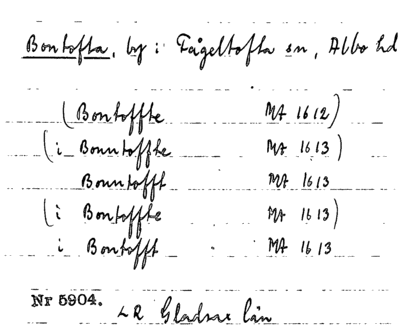 Bontofta, by i Fågeltofta sn, Albo hd
(Bontoffte MA 1612)
(i Bonntoffte MA 1613)
Bonntofft MA 1613
(i Bontoffte MA 1613)
i Bontofft MA 1613
Nr 5904.
LR Gladsax län